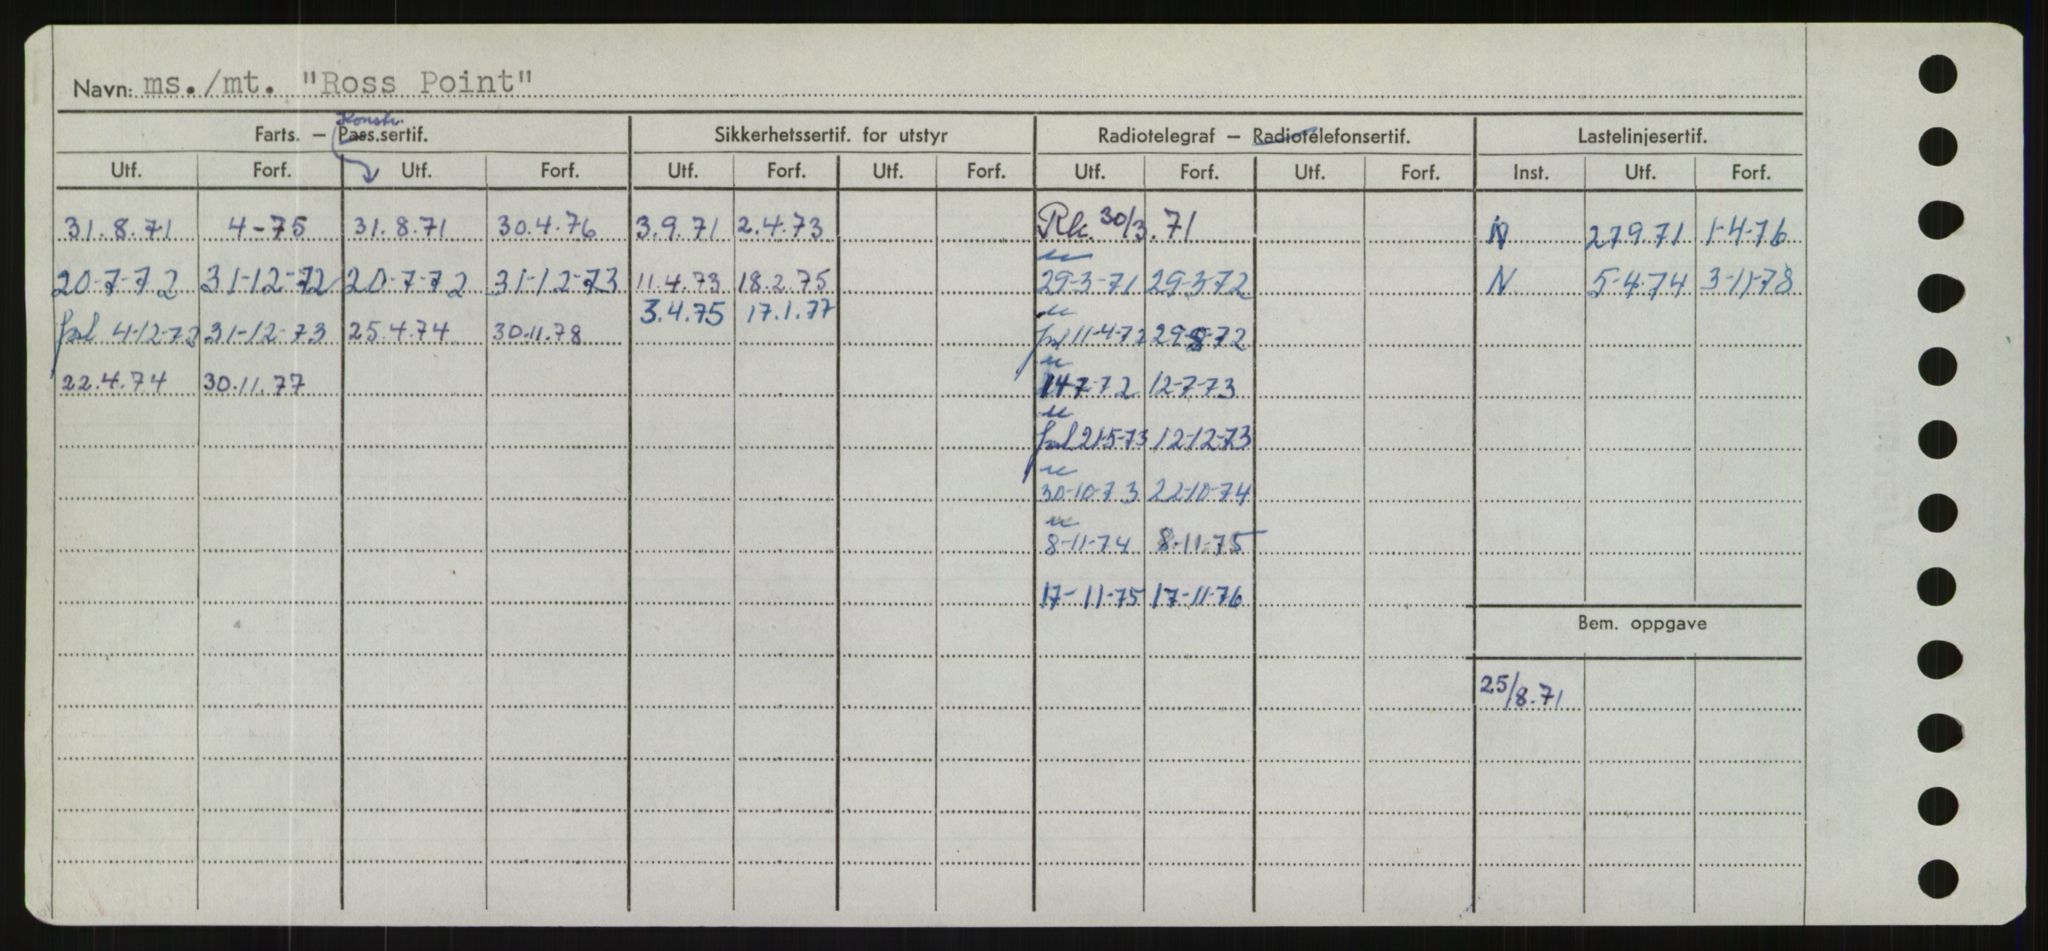 Navn: ms./mt. "Ross Point"
Konstr.
Farts. — Pass.sertif. Sikkerhetssertif. for utstyr Radiotelegraf — Radiotelefonsertif. Lastelinjesertif.
Utf. Forf. Utf. Forf. Utf. Forf. Utf. Forf. Utf. Forf. Utf. Forf. Inst. Utf. Forf.
31.8.71 4-75 31.8.71 30.4.76 3.9.71 2.4.73 Rk. 30/3.71 N 279.71 1-4-76
20-7-72 31-12-72 20-7-72 31-12-73 11.4.73 18.2.75 29-3-71 29-3-72 N 5-4-74 3-11-78
3.4.75 17.1.77
4-12-72 31-12-73 25.4.74 30.11.78 11-4-72 29-8-72
22.4.74 30.11.77 147-72 12-7-73
21-5-73 12-12-73
30-10-73 22-10-74
8-11-74 8-11-75
17-11-75 17-11-76
Bem. oppgave
25/8.71